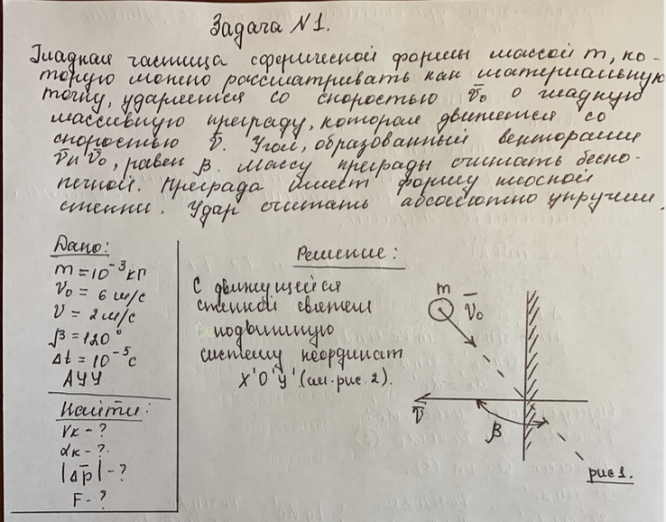 Задача N1.
Гладкая частица сферической формы массой m, ко-
торую можно рассматривать как материальную
точку, ударяется со скоростью v̄₀ о гладкую
массивную преграду, которая движется со
скоростью v̄. Угол, образованный векторами
v̄ и v̄₀, равен β. Массу преграды считать беско-
нечной. Преграда имеет форму плоской
стенки. Удар считать абсолютно упругим.
Дано:
m = 10⁻³ кг
v₀ = 6 м/с
v = 2 м/с
β = 120°
Δt = 10⁻⁵ с
АУУ
Найти:
vк - ?
αк - ?
|Δp̄| - ?
F - ?
Решение:
С движущейся
стенкой свяжем
подвижную
систему координат
X'O'Y' (см. рис. 2).
m
v̄₀
v̄
β
рис 1.